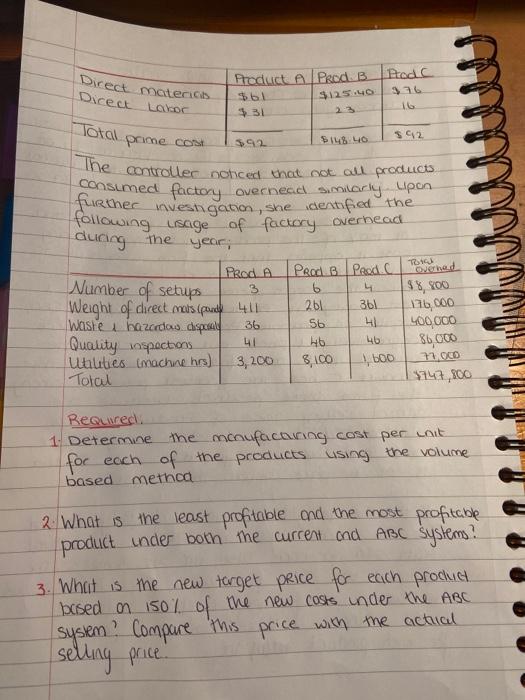 Product A Prod. B Prod C
Direct materials $61 $125.40 $76
Direct Labor $31 23 16
Total prime cost $92 $148.40 $92
The controller noticed that not all products
consumed factory overhead similarly. Upon
further investigation, she identified the
following usage of factory overhead
during the year;
Prod A Prod B Prod C Total overhead
Number of setups 3 6 4 $8,800
Weight of direct mats (pounds) 411 261 361 176,000
Waste & hazardous disposal 36 56 41 400,000
Quality inspections 41 46 46 86,000
Utilities (machine hrs) 3,200 8,100 1,600 77,000
Total $747,800
Required:
1. Determine the manufacturing cost per unit
for each of the products using the volume
based method
2. What is the least profitable and the most profitable
product under both the current and ABC systems?
3. What is the new target price for each product
based on 150% of the new costs under the ABC
system? Compare this price with the actual
selling price.